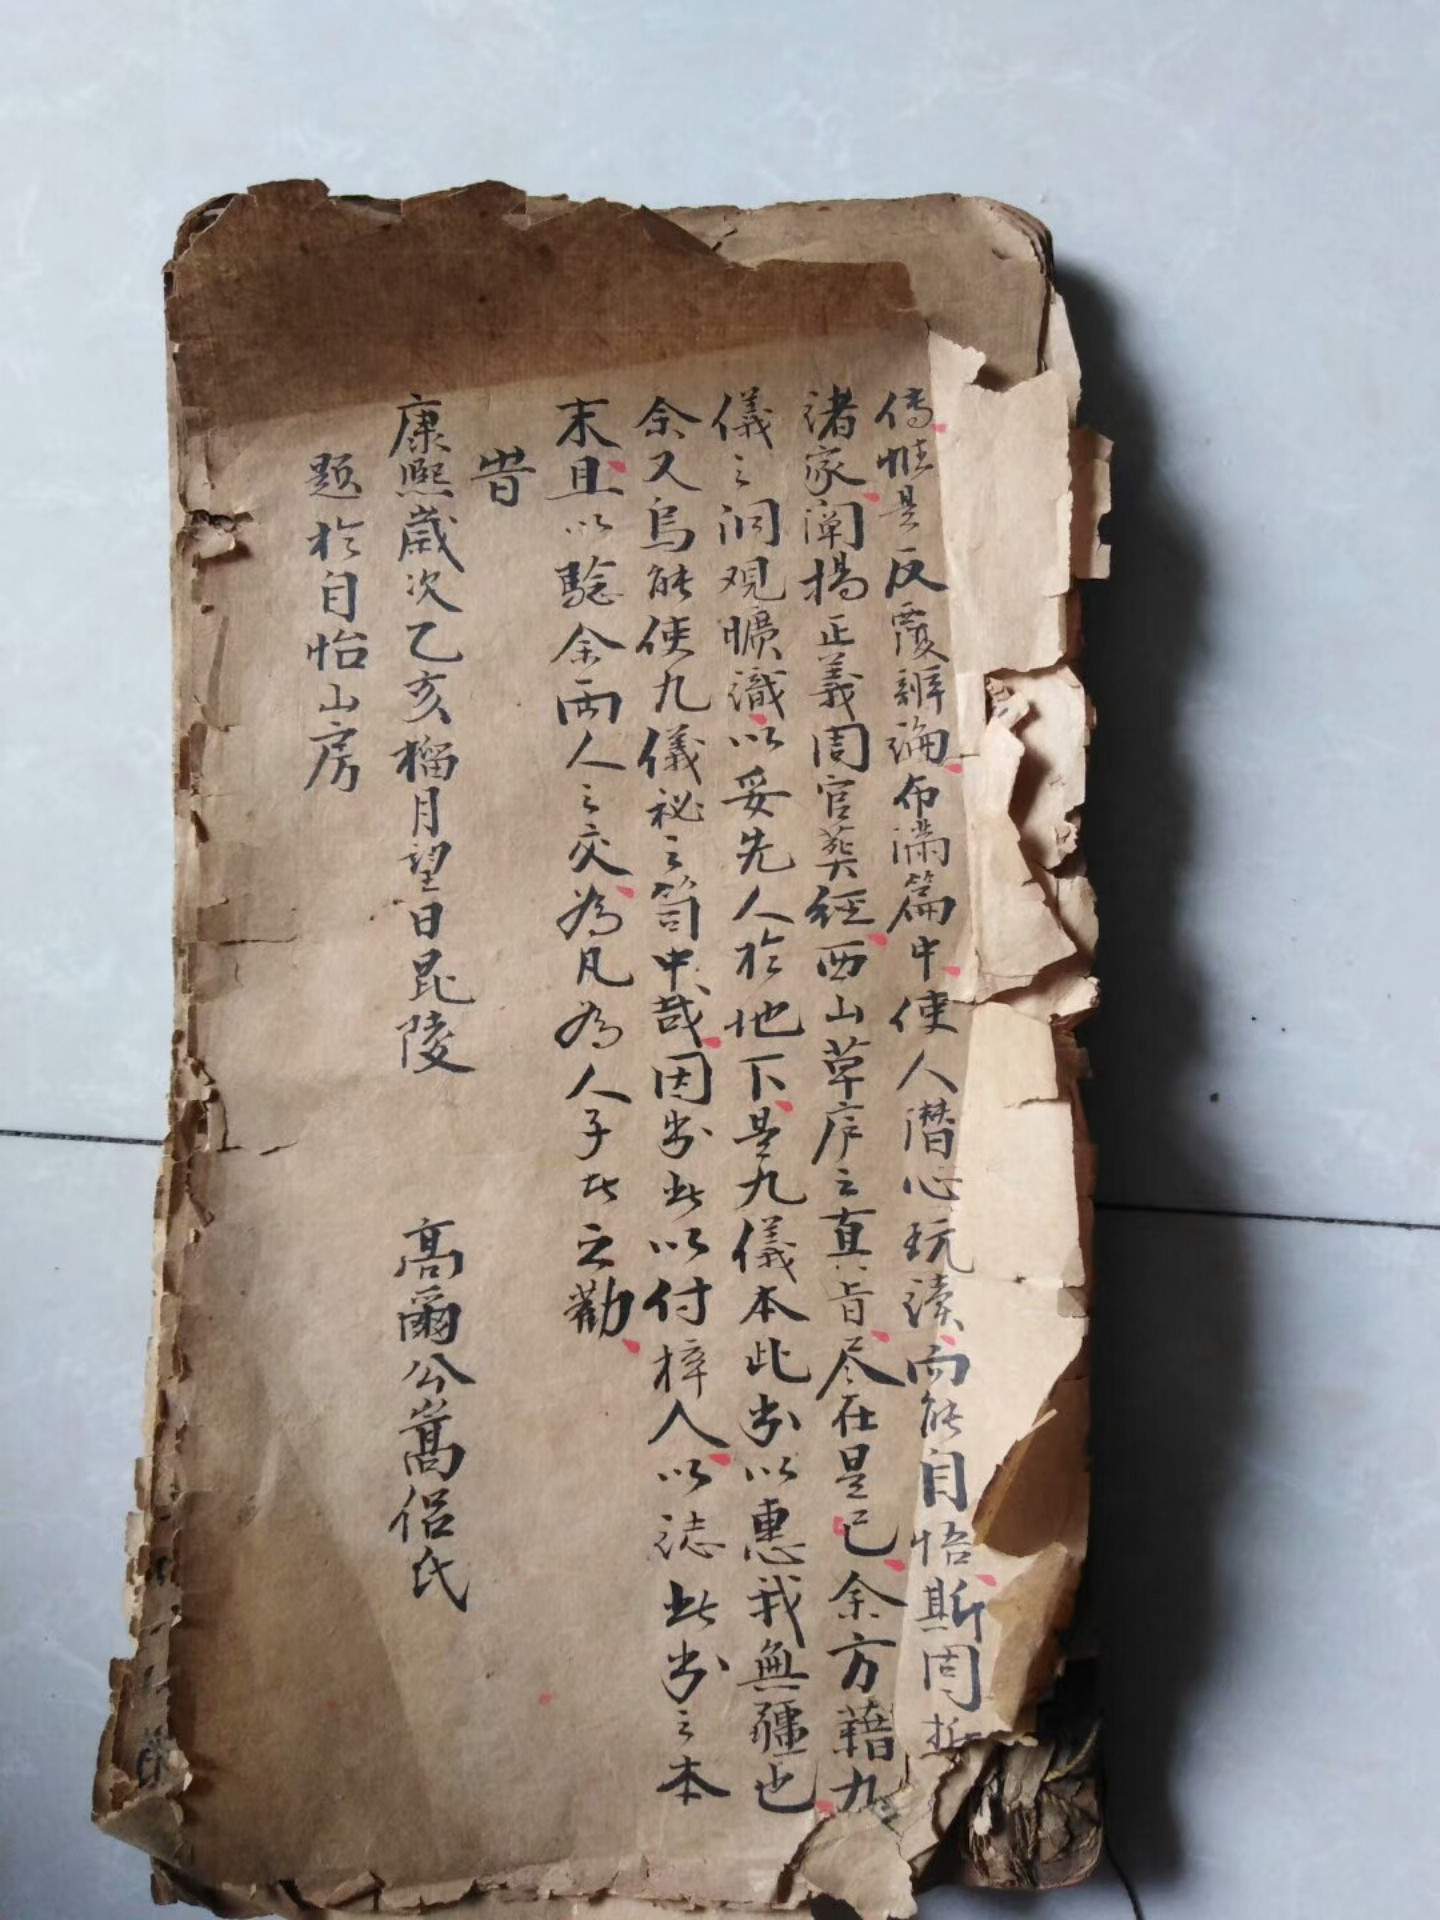 傳惟是反覆辨論布滿篇中使人潛心玩讀而能自悟斯固
諸家闡揚正義周官葬經西山草序之真旨尽在是已余方藉九
儀之洞观曠識以妥先人於地下是九儀本此书以惠我無疆也
余又烏能使九儀祕之笥中哉因书此以付梓人以誌此书之本
末且以騐余两人之交為凡為人子者之勸
旹
康熙歲次乙亥榴月望日昆陵 髙爾公嵩侣氏
題於自怡山房